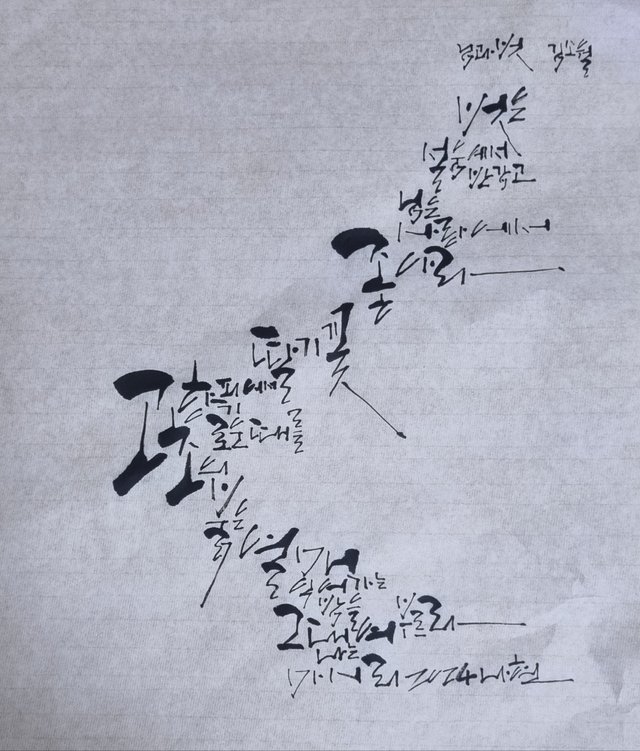 님과벗 김소월
벗은
설움에서
반갑고
님은
사랑에서
좋아라
딸기꽃
피어서
향기로운때를
고초의
붉은
열매
익어가는
밤을
그대여 부르라
나는
마시리